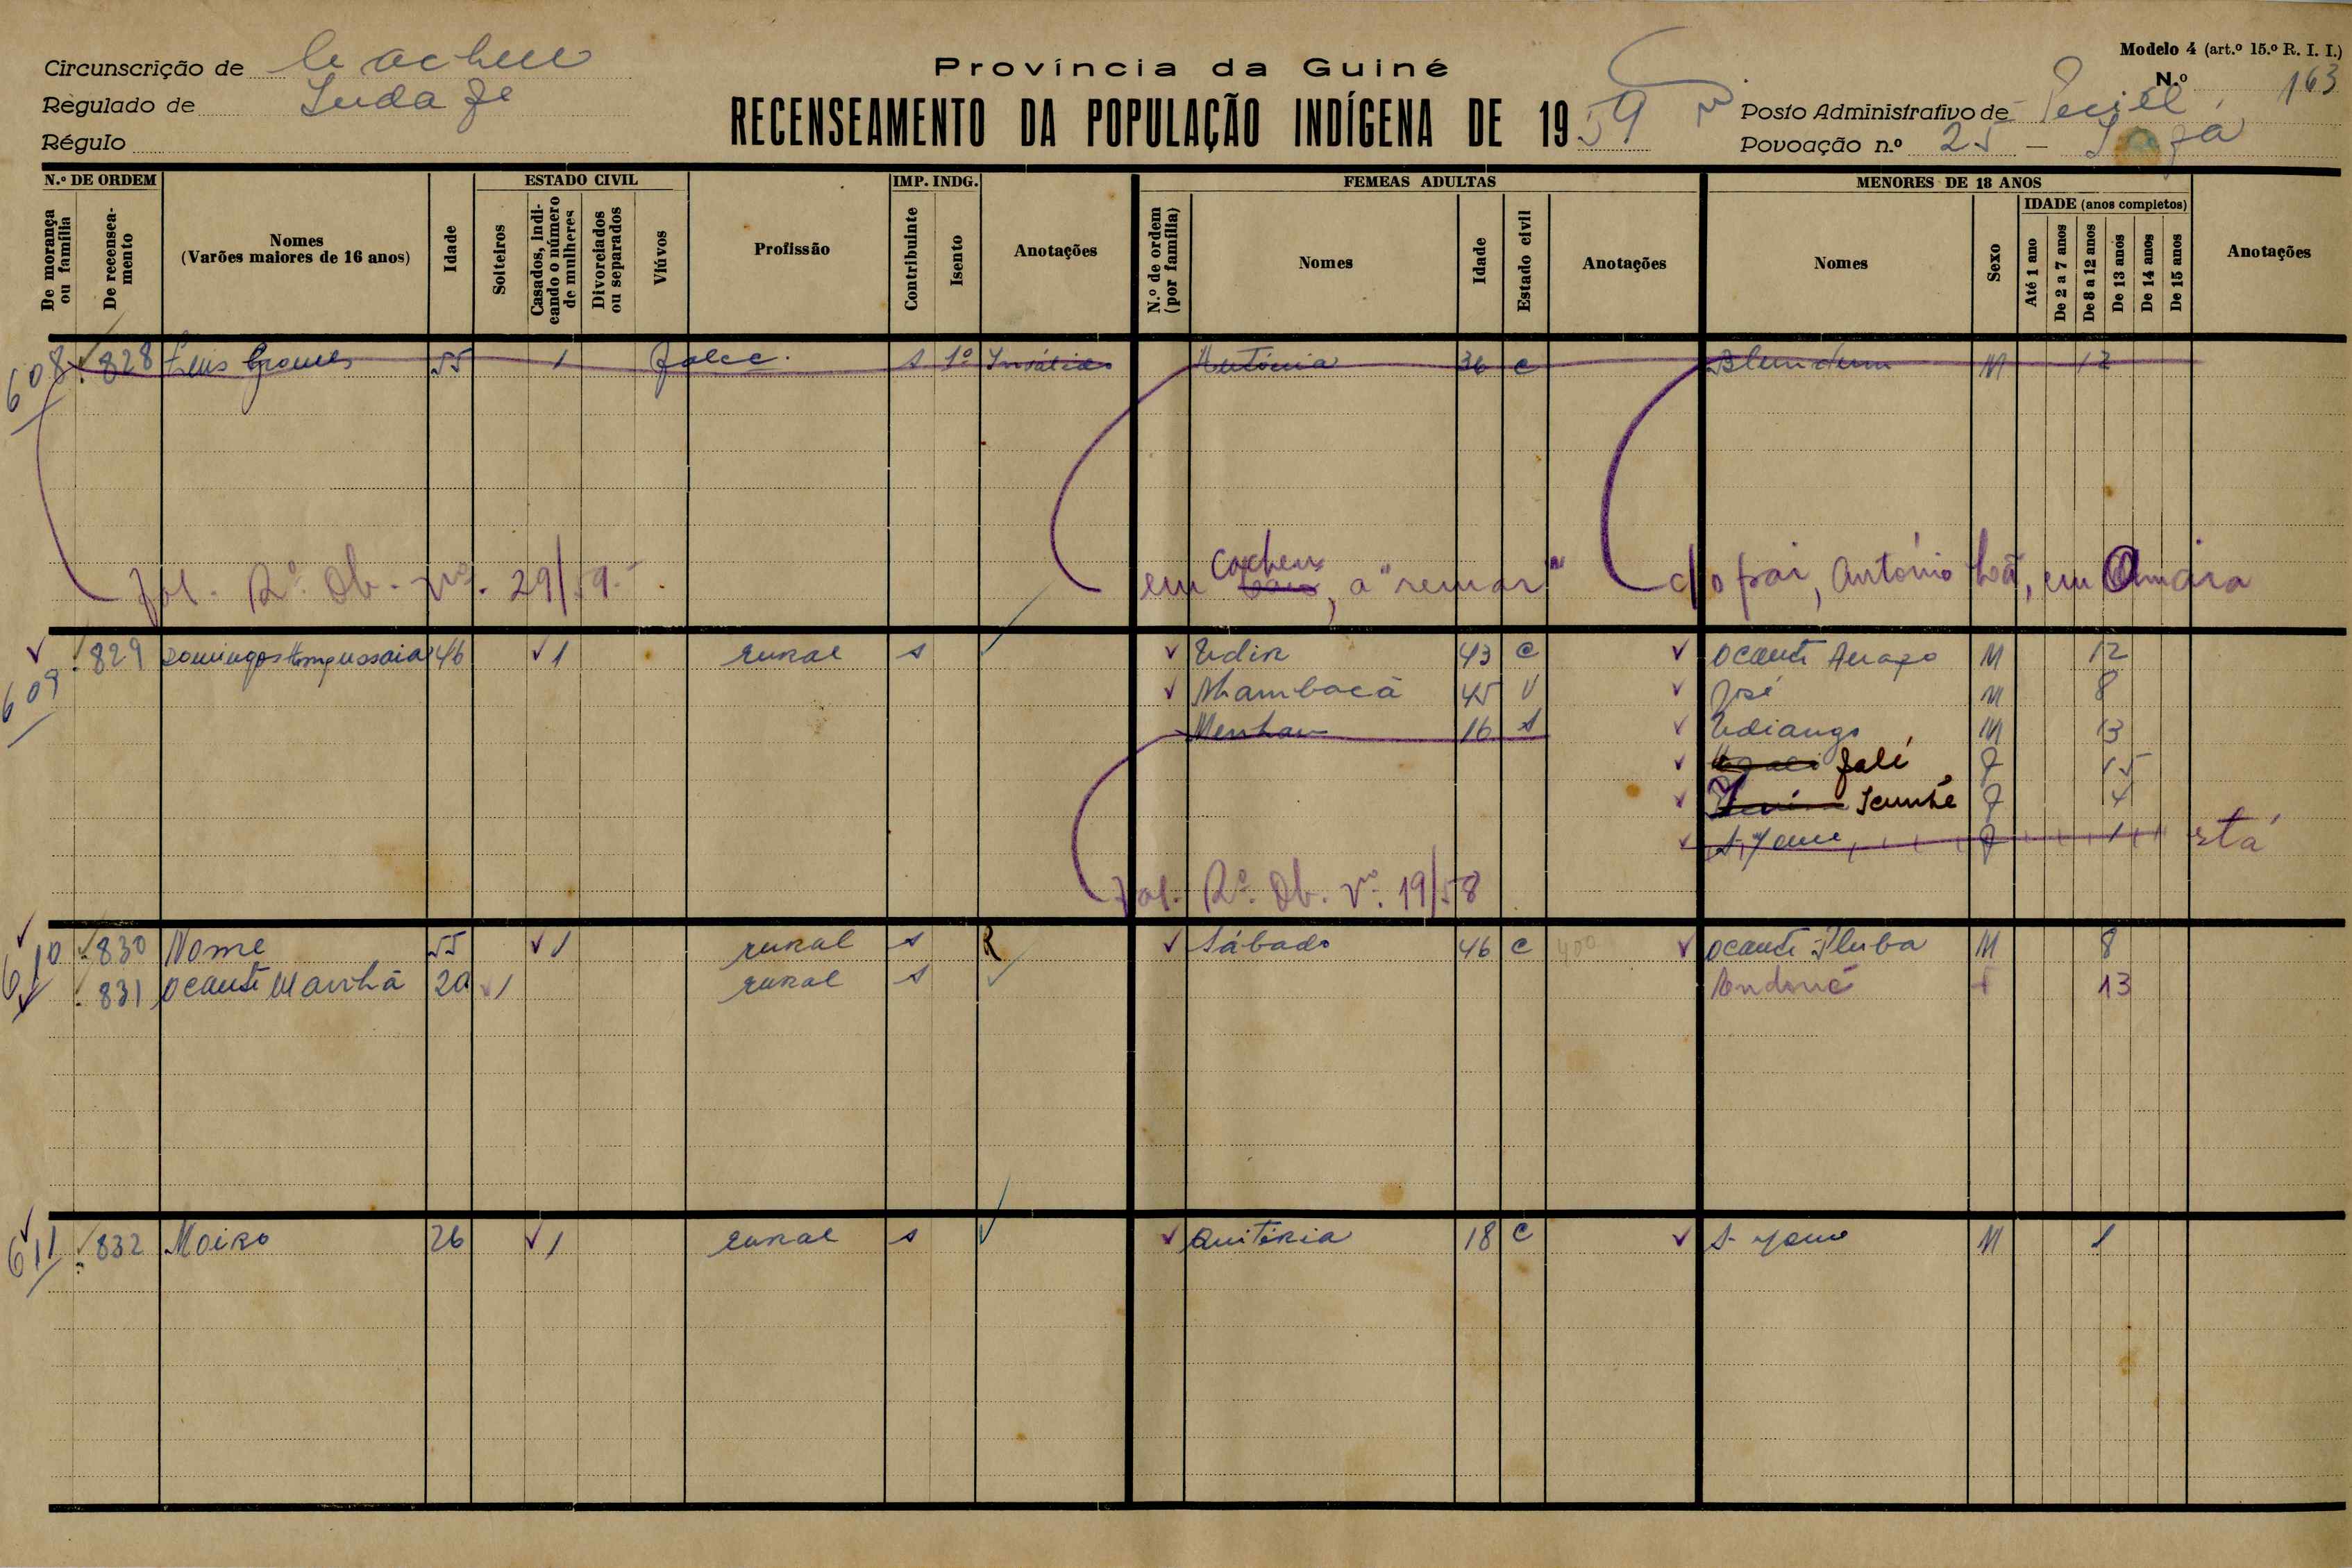 Modelo 4 (art.º 15.º R. I. I.)
N.º 163
Província da Guiné
RECENSEAMENTO DA POPULAÇÃO INDÍGENA DE 1959
Circunscrição de Cacheu
Regulado de
Régulo
Posto Administrativo de
Povoação n.º 25 –
N.º DE ORDEM
De morança ou família
De recenseamento
Nomes
(Varões maiores de 16 anos)
Idade
ESTADO CIVIL
Solteiros
Casados, indicando o número de mulheres
Divorciados ou separados
Viúvos
Profissão
IMP. INDG.
Contribuinte
Isento
Anotações
FEMEAS ADULTAS
N.º de ordem (por família)
Nomes
Idade
Estado civil
Anotações
MENORES DE 18 ANOS
Nomes
Sexo
IDADE (anos completos)
Até 1 ano
De 2 a 7 anos
De 8 a 12 anos
De 13 anos
De 14 anos
De 15 anos
Anotações
608 828 Luis Gomes 55 1 Falec. s 1º Inválido Antónia 36 c M 12
Fal. Rº. Ob. nº. 29/59.
em Cacheu, a "remar"
c/o pai, António Cã, em
609 829 Domingos 46 1 rural s Udin 43 c Ocante M 12
Nhambacã 45 V José M 8
16 s Udiango M 13
Falé F 15
F 4
S/ nome F 1 stá
Fal. Rº. Ob. nº. 19/58
610 830 Nome 55 1 rural s R Sábado 46 c 400 Ocante M 8
831 Ocante Manhã 20 1 rural s 13
611 832 Moiro 26 1 rural s Quitéria 18 c S- nome M 1